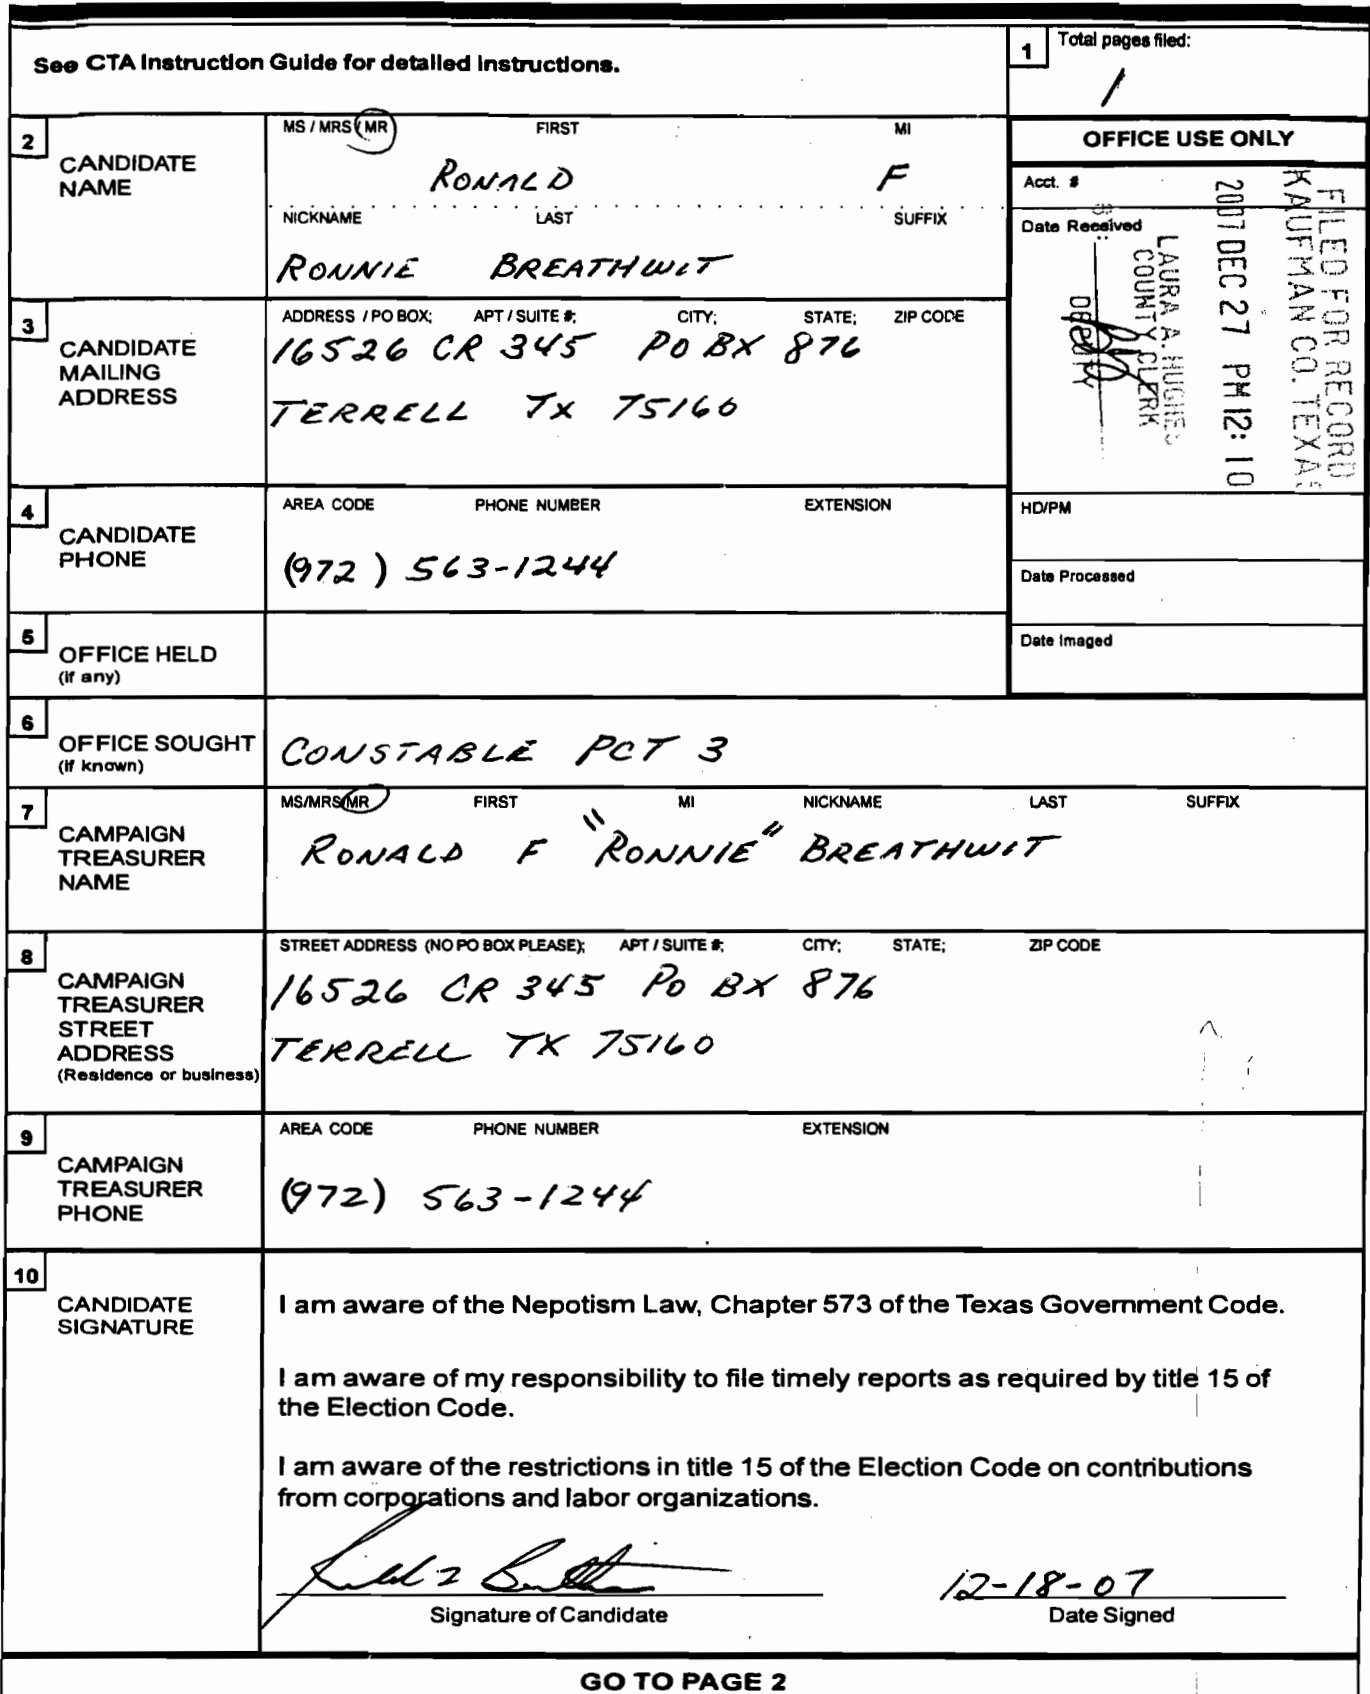 See CTA Instruction Guide for detailed instructions.
1 Total pages filed:
1
2 CANDIDATE NAME
MS / MRS / MR FIRST MI
RONALD F
NICKNAME LAST SUFFIX
RONNIE BREATHWIT
OFFICE USE ONLY
Acct. #
Date Received
FILED FOR RECORD
KAUFMAN CO. TEXAS
2007 DEC 27 PM 12: 10
LAURA A HUGHES
COUNTY CLERK
DEPUTY
3 CANDIDATE MAILING ADDRESS
ADDRESS / PO BOX; APT / SUITE #; CITY; STATE; ZIP CODE
16526 CR 345 PO BX 876
TERRELL TX 75160
4 CANDIDATE PHONE
AREA CODE PHONE NUMBER EXTENSION
(972) 563-1244
HD/PM
Date Processed
Date Imaged
5 OFFICE HELD
(if any)
6 OFFICE SOUGHT
(if known)
CONSTABLE PCT 3
7 CAMPAIGN TREASURER NAME
MS/MRS/MR FIRST MI NICKNAME LAST SUFFIX
RONALD F "RONNIE" BREATHWIT
8 CAMPAIGN TREASURER STREET ADDRESS
(Residence or business)
STREET ADDRESS (NO PO BOX PLEASE); APT / SUITE #; CITY; STATE; ZIP CODE
16526 CR 345 PO BX 876
TERRELL TX 75160
9 CAMPAIGN TREASURER PHONE
AREA CODE PHONE NUMBER EXTENSION
(972) 563-1244
10 CANDIDATE SIGNATURE
I am aware of the Nepotism Law, Chapter 573 of the Texas Government Code.
I am aware of my responsibility to file timely reports as required by title 15 of
the Election Code.
I am aware of the restrictions in title 15 of the Election Code on contributions
from corporations and labor organizations.
12-18-07
Signature of Candidate Date Signed
GO TO PAGE 2